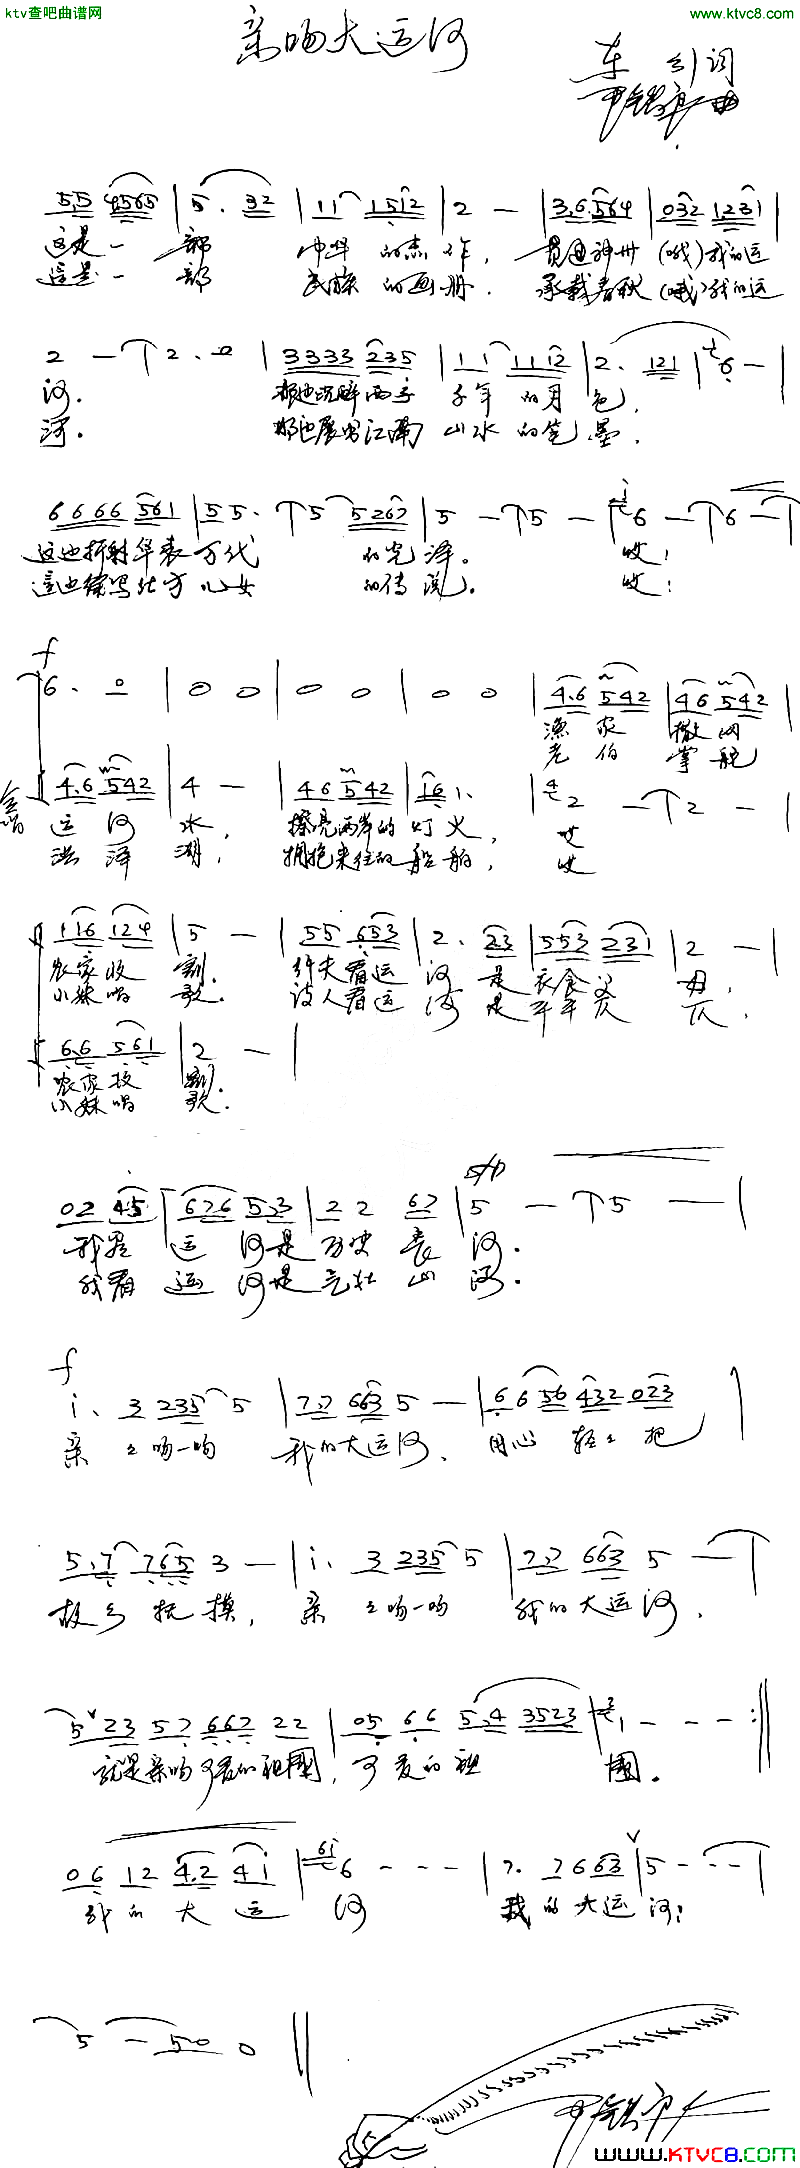 ktv查吧曲谱网
www.ktvc8.com
亲吻大运河
车 词
尹铁良曲
5.5 4565 | 5. 32 | 11 1512 | 2 — | 3.6564 | 032 1231 |
这是一 部 中华 的杰作, 贯通神州 (哦)我的运
這是一 部 民族 的画册. 承载春秋 (哦)我的运
2 — 2. 0 | 3333 235 | 11 1112 | 2. 121 | 6 — |
河. 那也沉醉两千 年 的月 色,
河. 那也展写江南 山水 的笔 墨.
6666 561 | 55. 5 5267 | 5 — 5 — 6 — 6 —
这也折射华表万代 的光 泽。 哎!
這也续写 儿女 的传 说. 哎!
f
6. 0 | 0 0 | 0 0 | 0 0 | 4.6 542 | 46 542 |
渔 家 撒 网
老 伯 掌 舵
合唱
4.6 542 | 4 — | 46 542 | 16 1. | 2 — 2 — |
运 河 水, 擦亮两岸的 灯 火, 哎
洪 泽 湖, 拥抱来往的 船 舶, 哎
116 124 | 5 — | 55 653 | 2. 23 | 553 231 | 2 — |
农家收 割. 纤夫看运 河 是 衣食父 母,
小妹唱 歌. 诗人看运 河 是
6.6 561 | 2 — |
农家收 割.
小妹唱 歌.
02 45 | 676 5.3 | 22 67 | 5 — 5 — |
我看 运 河是历史 长 河.
我看 运 河是 壮 山 河.
f
i. 3 235 5 | 7.7 663 5 — | 6 6 56 432 023
亲 吻一吻 我的大运河, 用心 轻 把
5.7 765 3 — | i. 3 235 5 | 7.7 663 5 —
故乡 抚 摸, 亲 吻一吻 我的大运河,
5 23 57 667 22 | 05 66 5.4 3523 | 1 - - - :||
就是亲吻可爱的祖國, 可爱的祖 國.
06 12 4.2 4i | 6 - - - | 7. 7663 | 5 - - -
我的 大 运 河 我 的大运 河!
5 — 50 0 ||
尹铁良
www.KTVC8.com